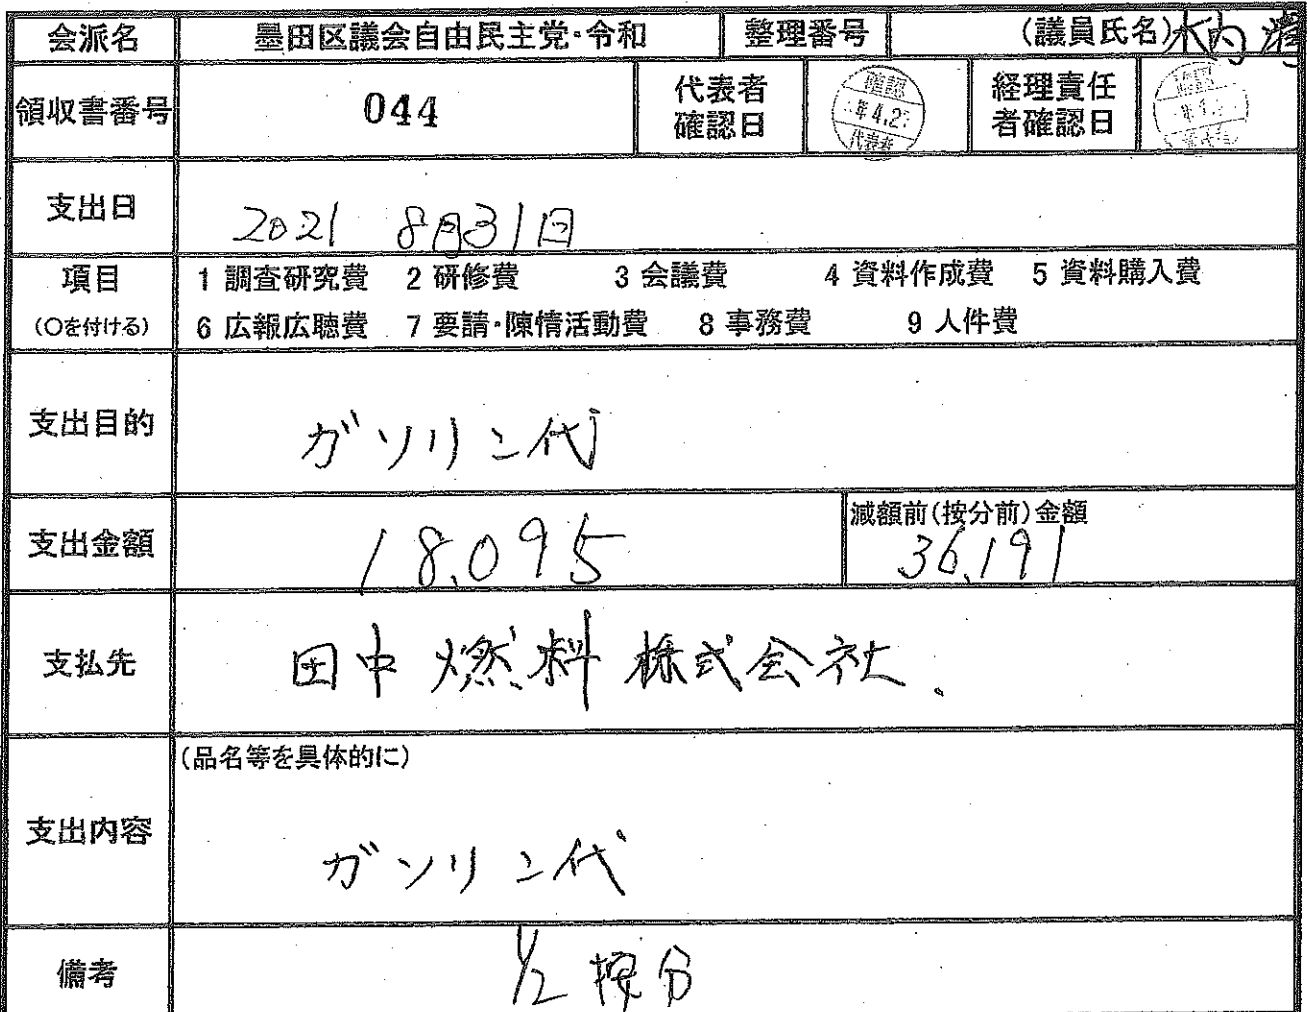 会派名 墨田区議会自由民主党・令和 整理番号 (議員氏名) 木内 清
領収書番号 044 代表者確認日 確認 年4.2 代表者 経理責任者確認日
支出日 2021 8月31日
項目 1 調査研究費 2 研修費 3 会議費 4 資料作成費 5 資料購入費
(○を付ける) 6 広報広聴費 7 要請・陳情活動費 8 事務費 9 人件費
支出目的 ガソリン代
支出金額 18,095 減額前(按分前)金額 36,191
支払先 田中燃料株式会社.
(品名等を具体的に)
支出内容 ガソリン代
備考 1/2 按分